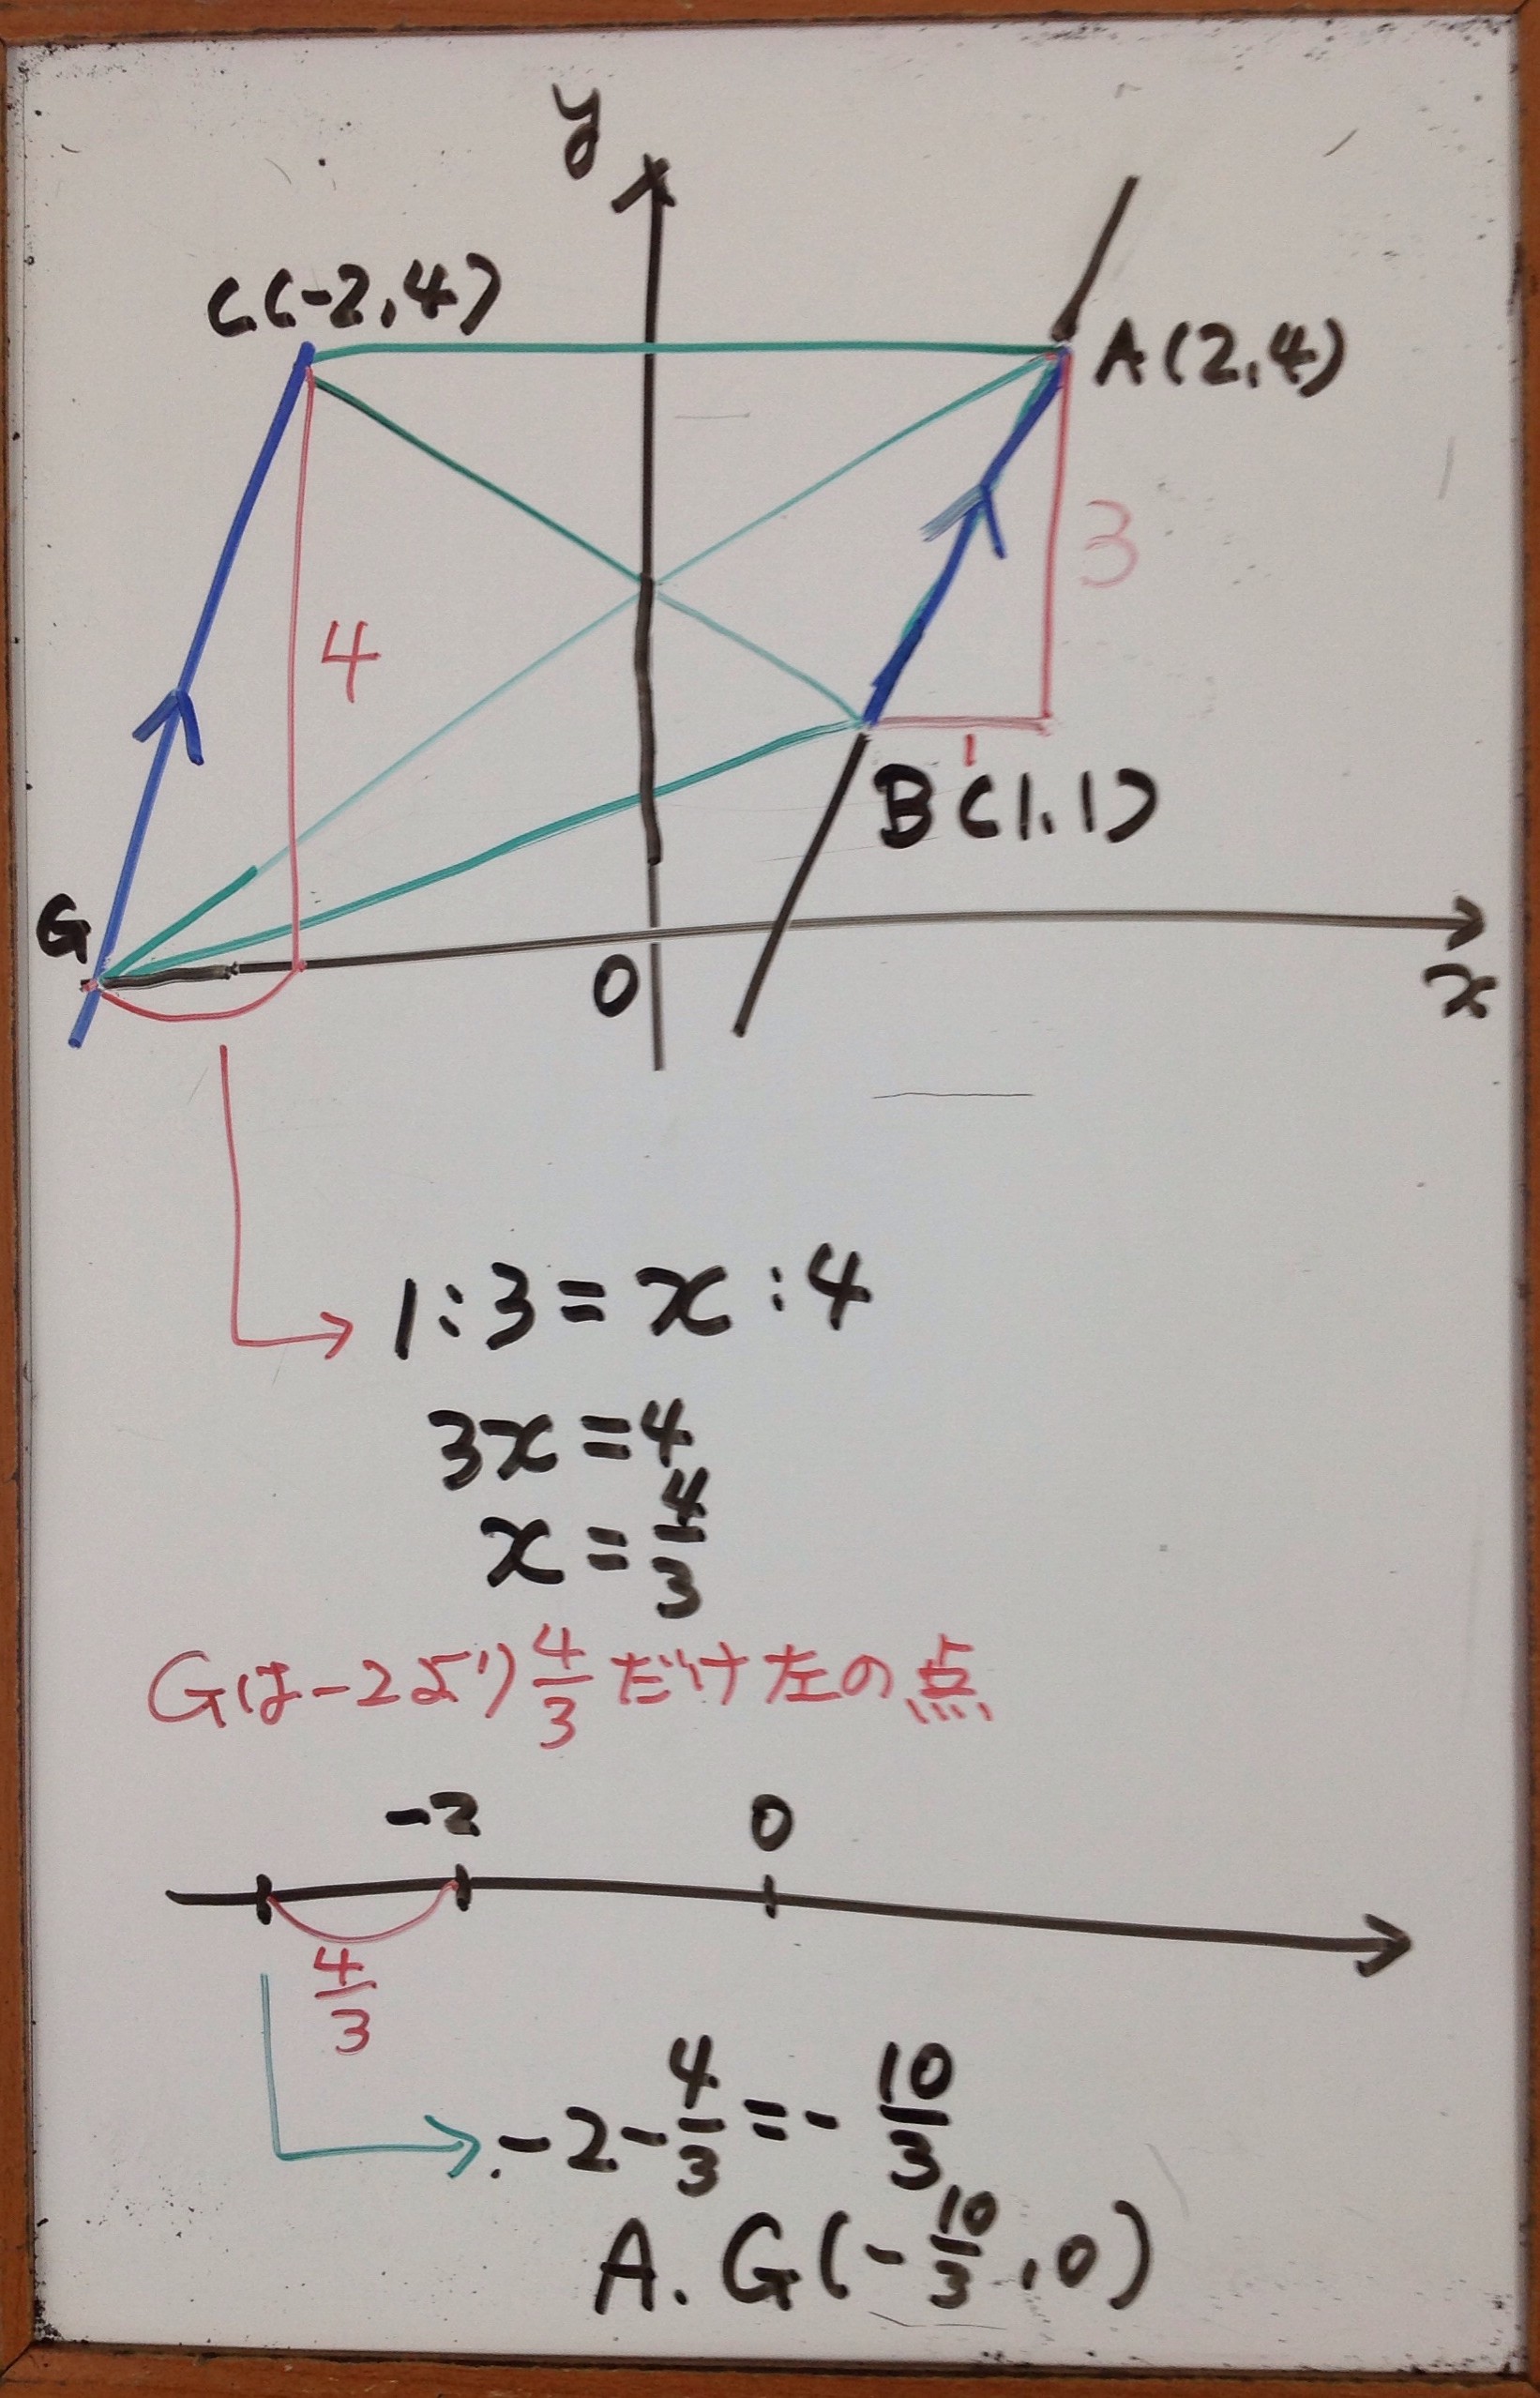 y
C(-2,4)
A(2,4)
3
4
1
B(1,1)
G
0
x
1:3=x:4
3x=4
x=4/3
Gは-2より4/3だけ左の点
-2 0
4/3
-2-4/3=-10/3
A. G(-10/3,0)